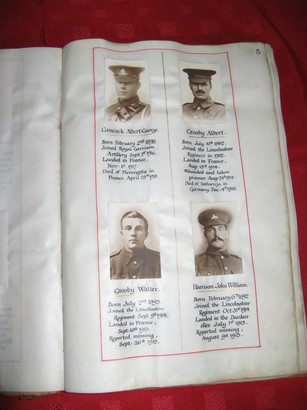 5
Gencock Albert George.
Born February 2nd
Joined Royal Garrison
Artillery Sept 1st 1916
Landed in France,
Nov 1st 1917.
Died of Meningitis in
France April 25th 1918.
Grooby Albert.
Born July 10th
Joined the Lincolnshire
Regiment in 1907.
Landed in France,
Aug 13th 1914.
Wounded and taken
prisoner Aug 26th 1914
Died of in
Germany Dec 4th 1918.
Grooby Walter.
Born July 2nd 1895.
Joined the Lincolnshire
Regiment Sept 9th 1914.
Landed in France,
Sept 10th 1915.
Reported missing,
Sept 26th 1915.
Harrison John William.
Born February 6th
Joined the Lincolnshire
Regiment Oct 31st 1914
Landed in the Dardan
elles July 1st 1915.
Reported missing,
August 9th 1915.